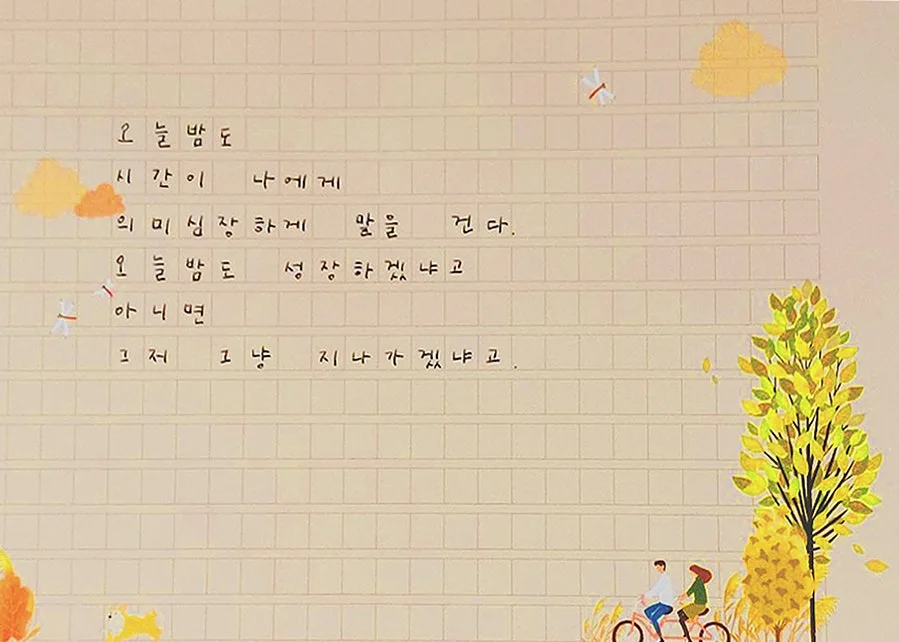 오늘밤도
시간이 나에게
의미심장하게 말을 건다.
오늘밤도 성장하겠냐고
아니면
그저 그냥 지나가겠냐고.